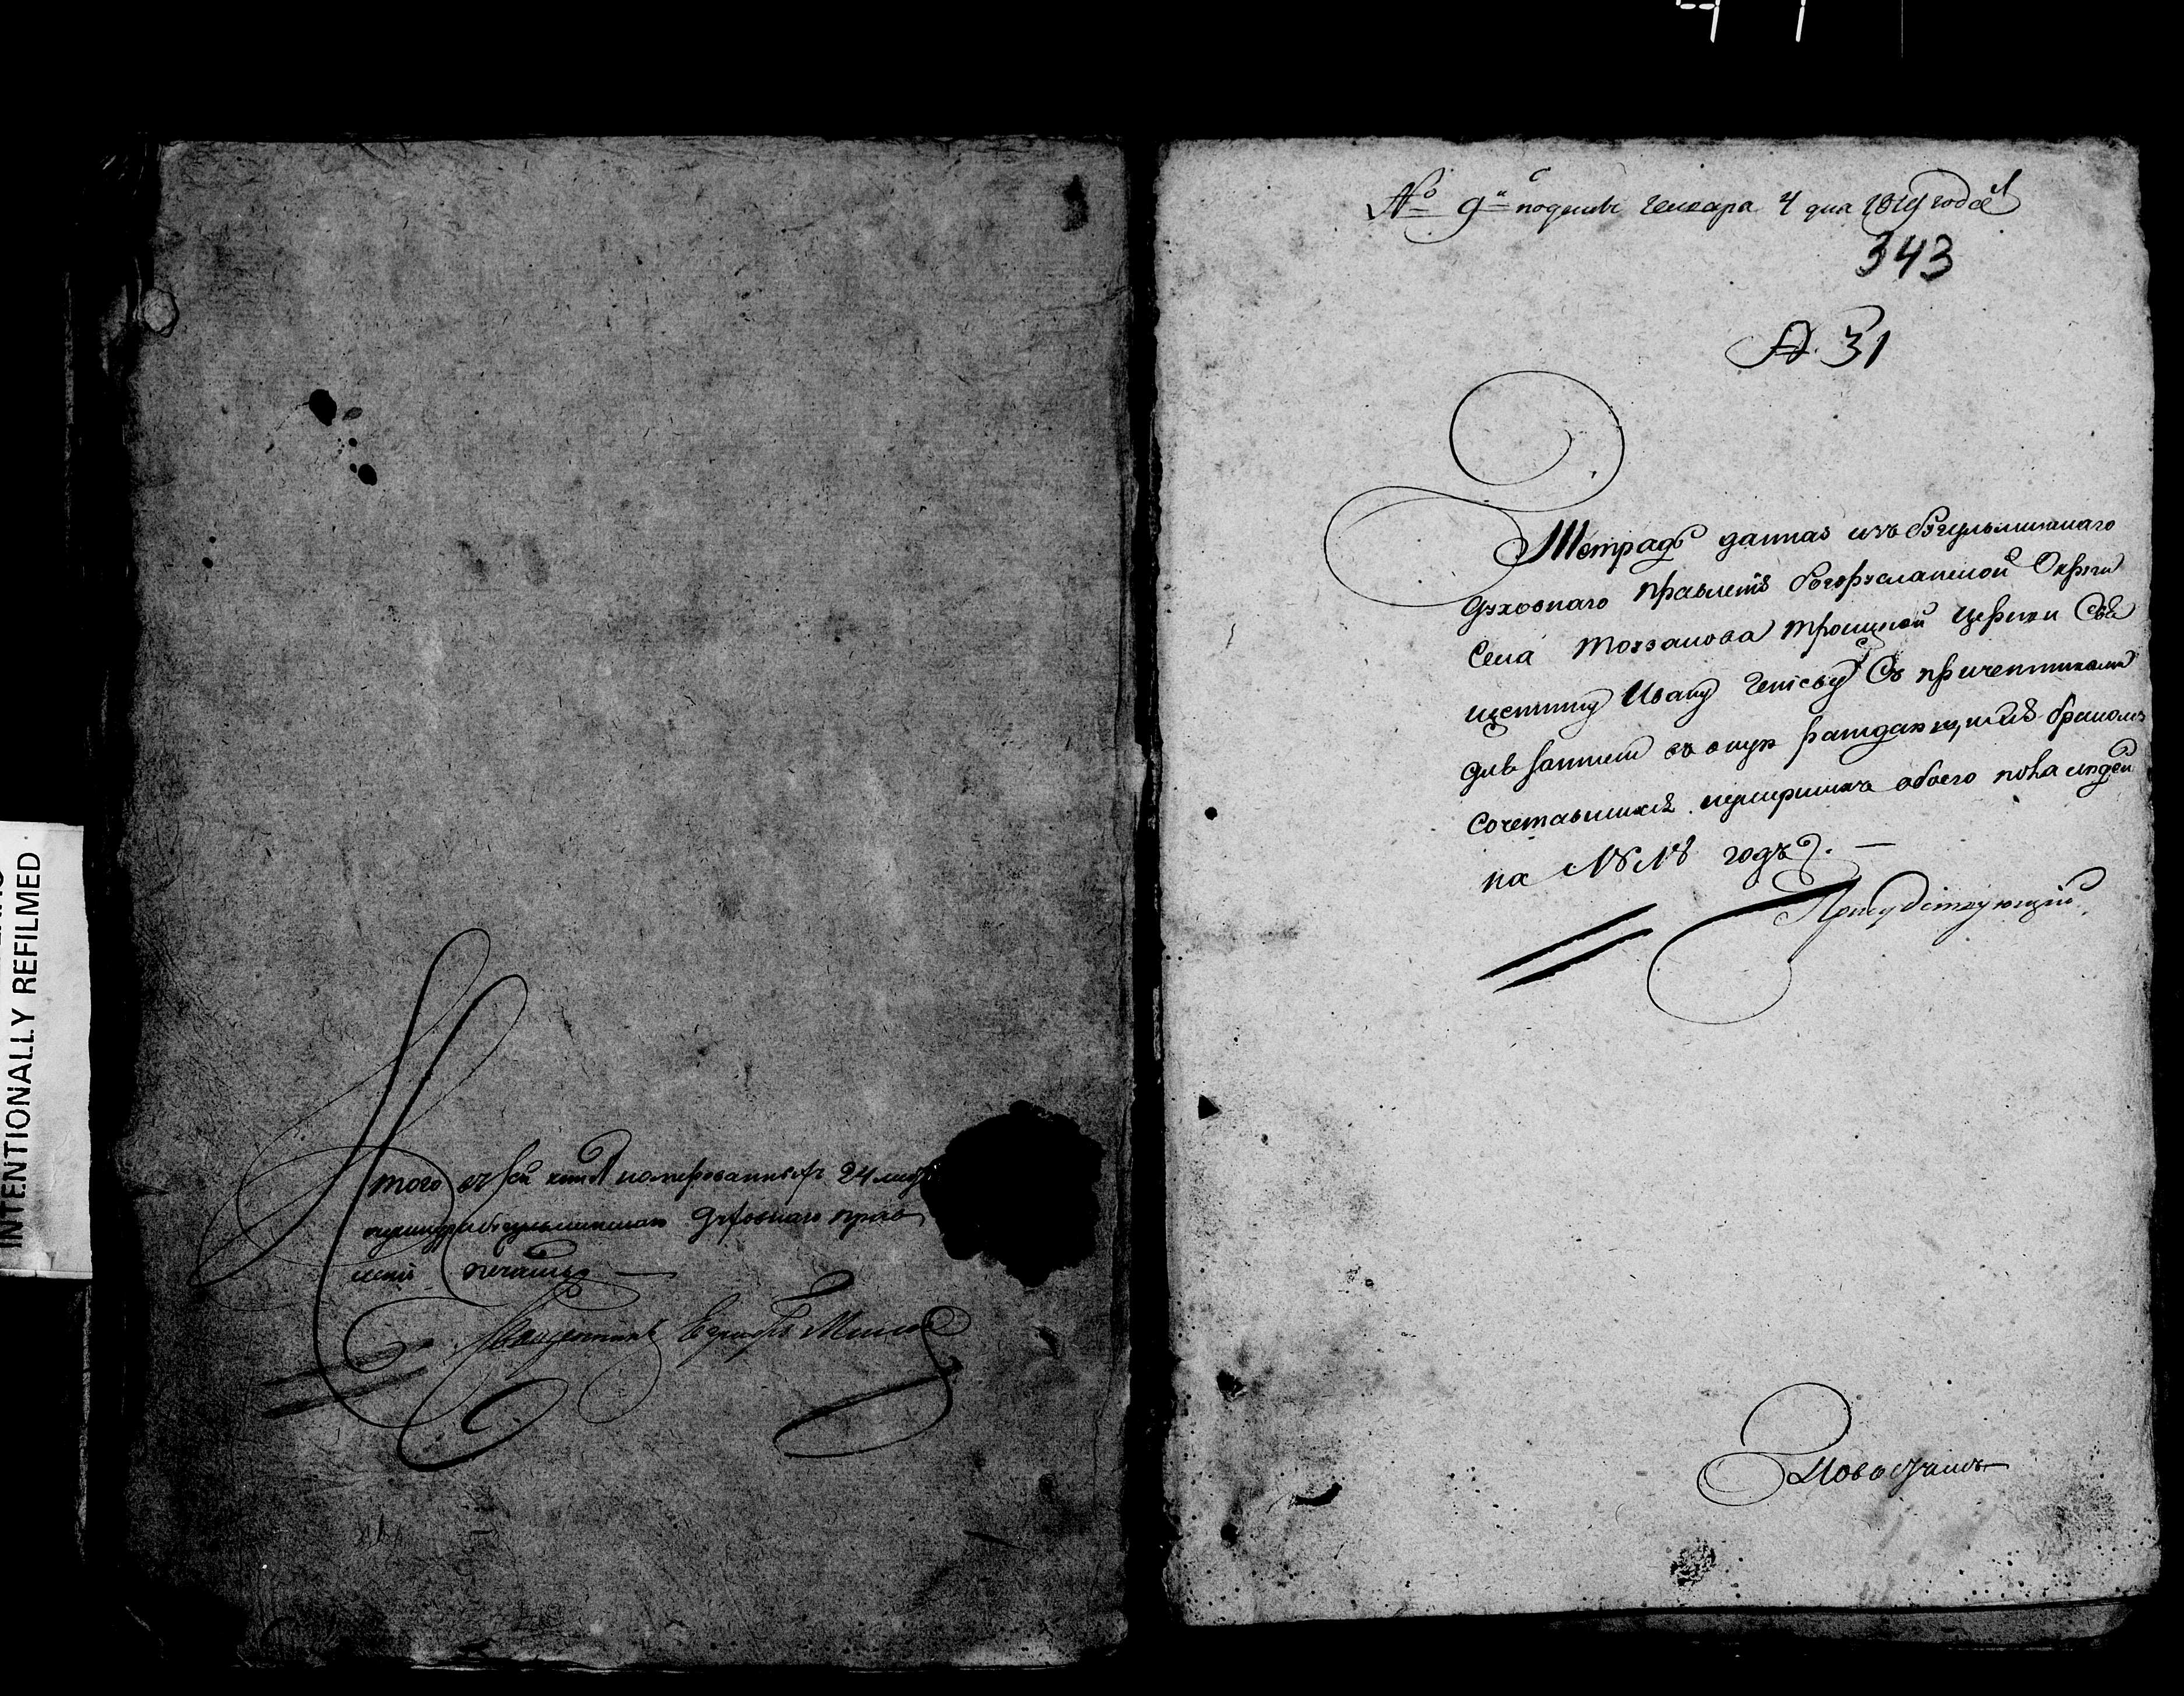 INTENTIONALLY REFILMED
того въ сей книге номерованныхъ 24 лис
духовнаго прав
ленія печатью
Священникъ
№ 9й поданъ генваря 4 дня 1819 года
343
31
Тетрадь данная изъ Бугульминскаго
духовнаго правленія Бугурусланской округи
села Токзанова троицкой церкви Свя
щеннику Ивану съ причетниками
для записи въ оную раждающихся бракомъ
сочетавшихся и умершихъ обоего пола людей
на 1818 годъ.
Присудствующій